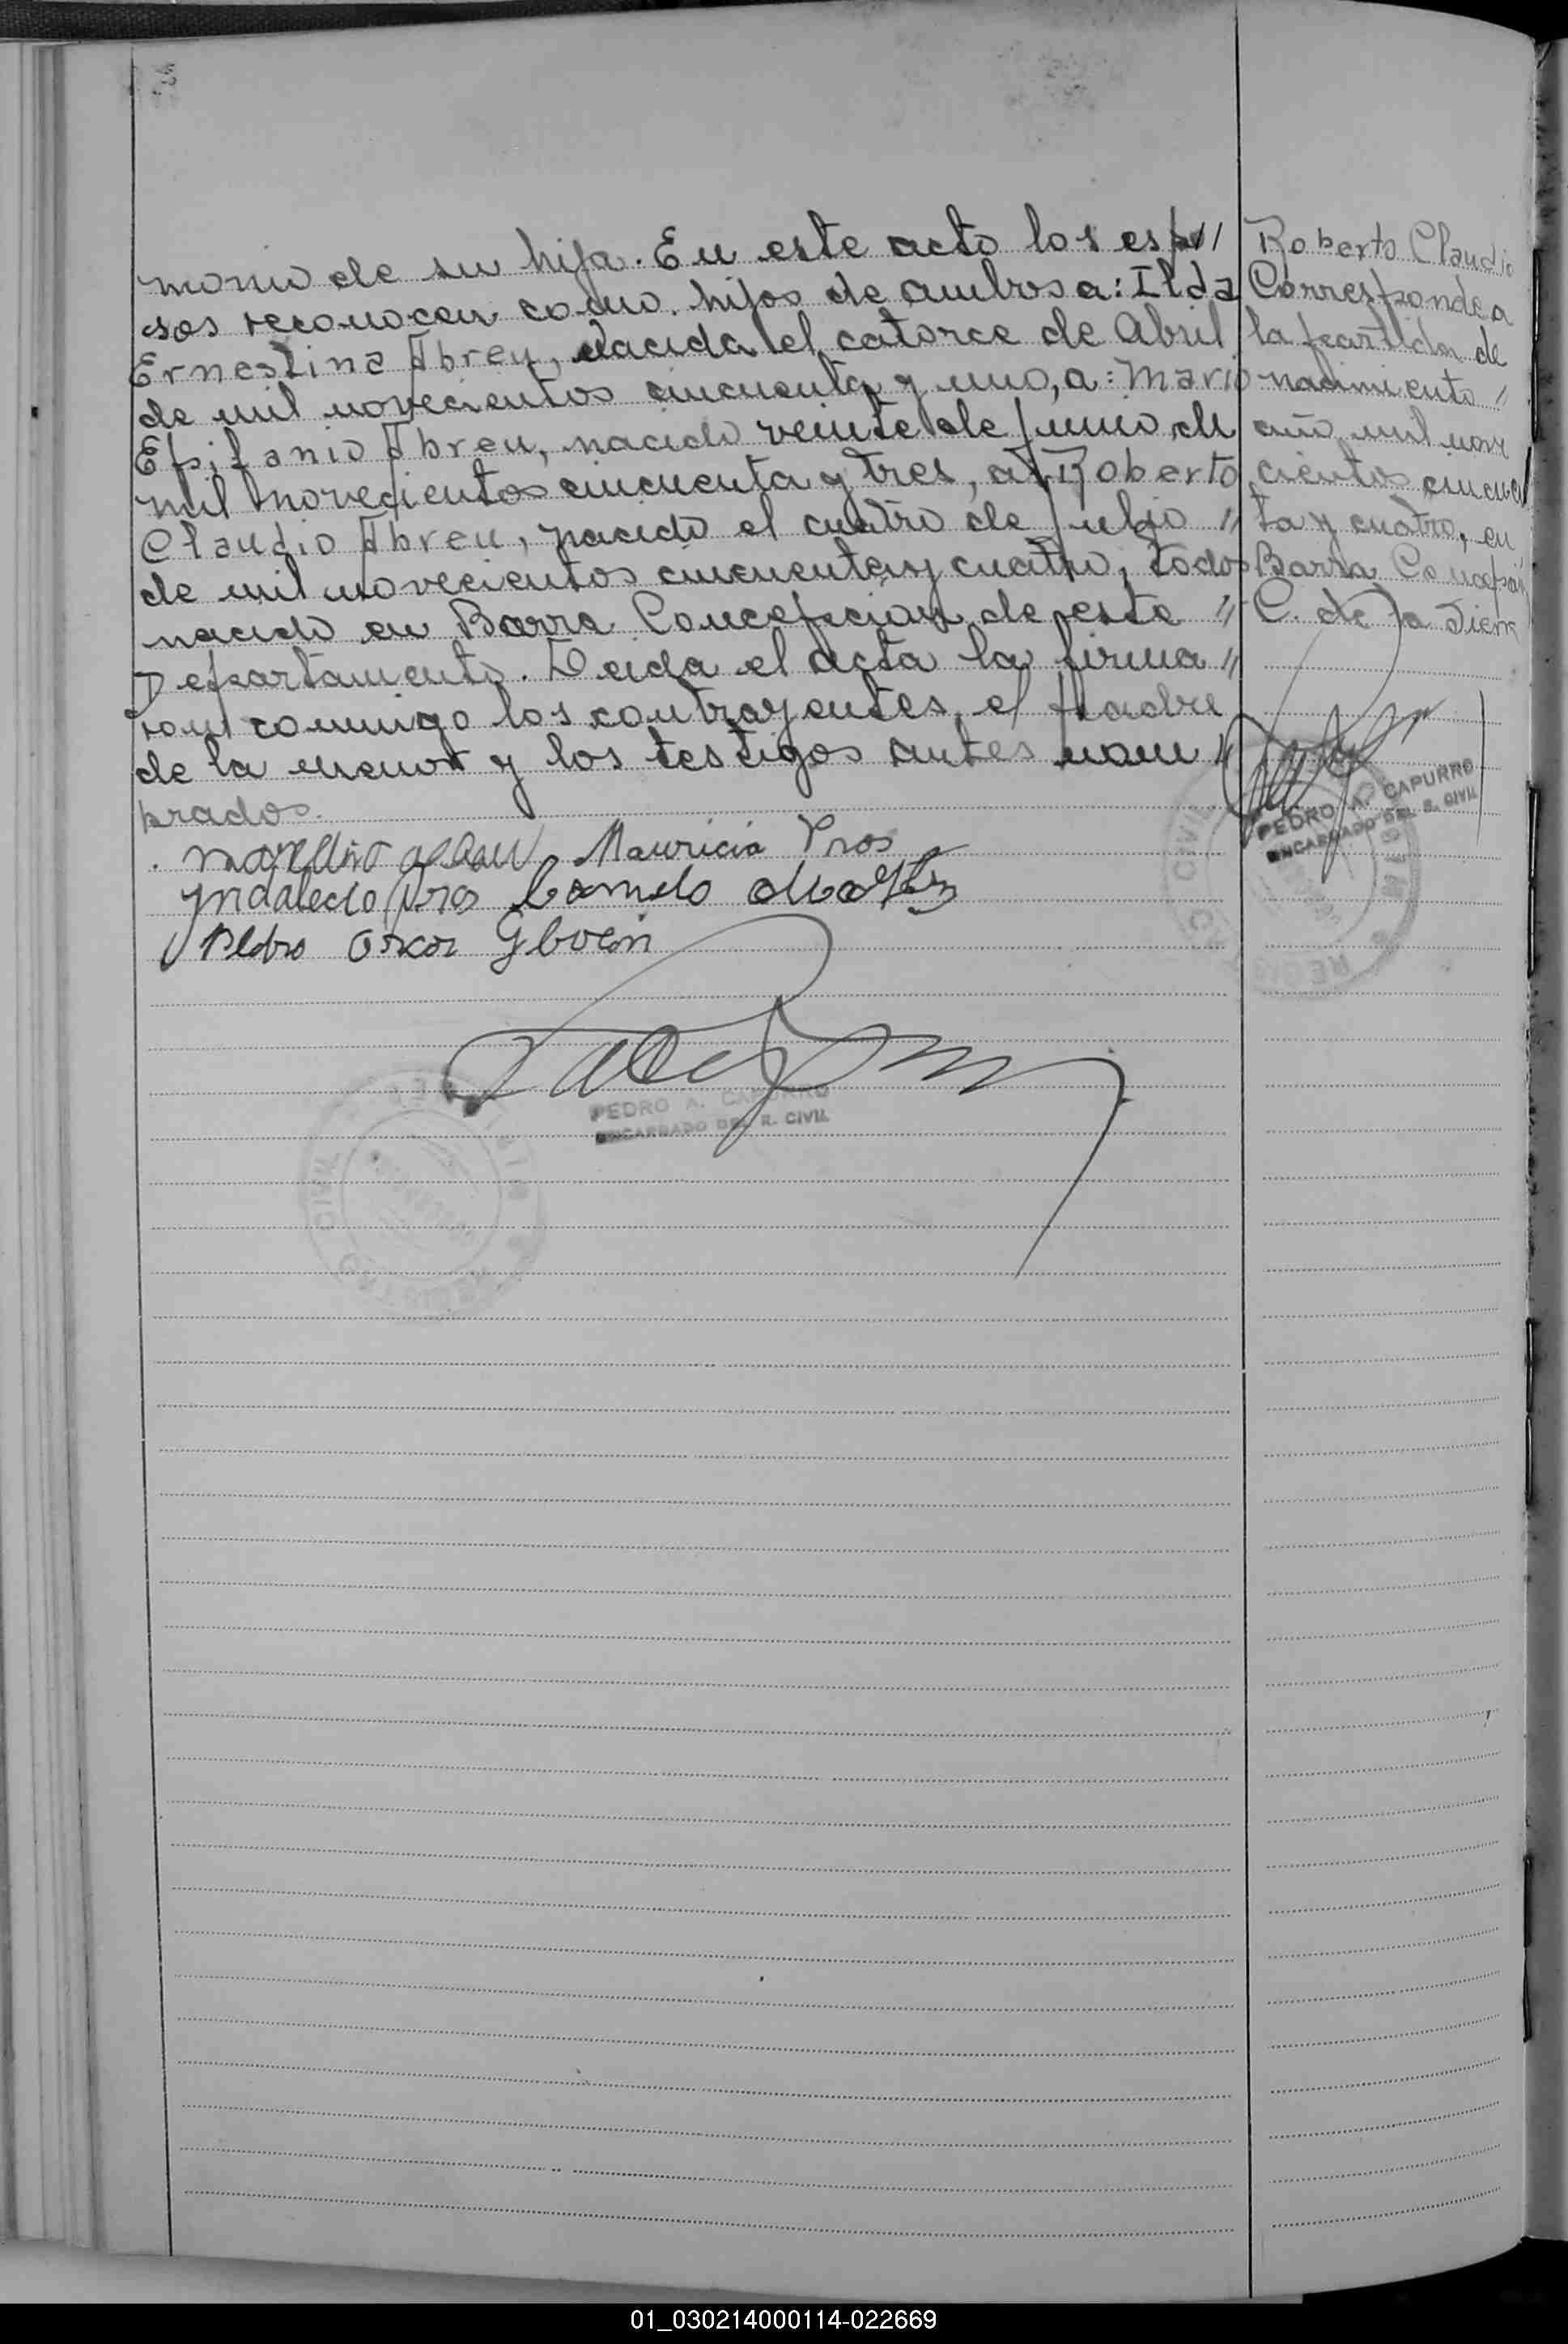 monio de su hija. En este acto los espo//
sos reconocen como hijos de ambos a: Ilda
Ernestina Abreu, nacida el catorce de Abril
de mil novecientos cincuenta y uno, a: Mario
Epifanio Abreu, nacido veinte de junio de
mil novecientos cincuenta y tres, a Roberto
Claudio Abreu, nacido el cuatro de julio //
de mil novecientos cincuenta y cuatro, todos
nacido en Barra Concepcion de este //
Departamento. Leida el acta la firma //
ron conmigo los contrayentes, el padre
de la menor y los testigos antes nom //
brados.
Marcelino Mauricia Pros
Yndalecio Pros Camilo
Pedro Oscar
PEDRO A. CAPURRO
ENCARGADO DEL R. CIVIL
REGISTRO CIVIL
Roberto Claudio
Corresponde a
la partida de
nacimiento //
año mil nove
cientos cincuen
ta y cuatro, en
Barra Concepción
C. de la Sierra
PEDRO A. CAPURRO
ENCARGADO DEL R. CIVIL
REGISTRO CIVIL
01_030214000114-022669